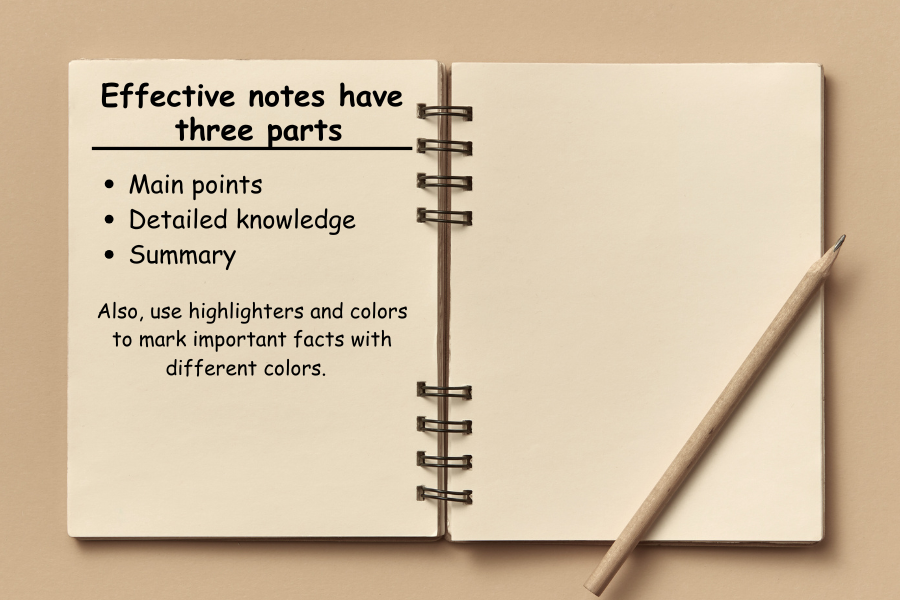 Effective notes have
three parts
• Main points
• Detailed knowledge
• Summary
Also, use highlighters and colors
to mark important facts with
different colors.